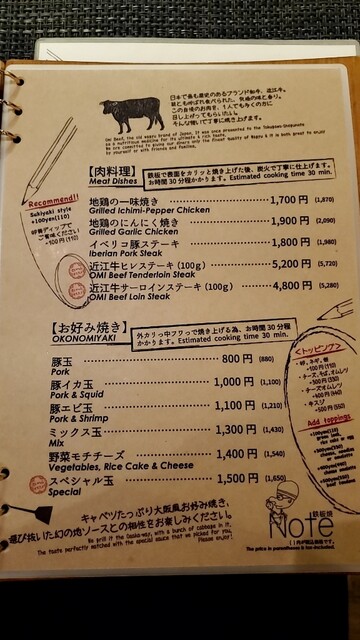 日本で最も歴史のあるブランド和牛、近江牛。
OMI Beef, the old
【肉料理】
Meat Dishes
鉄板で表面をカリッと焼き上げた後、炭火で丁寧に仕上げます。
お時間30分程かかります。Estimated cooking time 30 min.
Recommend!!
Sukiyaki style
+100yen(110)
卵黄ディップで
ご賞味ください
+100円(110)
地鶏の一味焼き 1,700円 (1,870)
Grilled Ichimi-Pepper Chicken
地鶏のにんにく焼き 1,900円 (2,090)
Grilled Garlic Chicken
イベリコ豚ステーキ 1,800円 (1,980)
Iberian Pork Steak
近江牛ヒレステーキ(100g) 5,200円 (5,720)
OMI Beef Tenderloin Steak
近江牛サーロインステーキ(100g) 4,800円 (5,280)
OMI Beef Loin Steak
【お好み焼き】
OKONOMIYAKI
外カリっ中フワっで焼き上げる為、お時間30分程
かかります。Estimated cooking time 30 min.
豚玉 800円 (880)
Pork
豚イカ玉 1,000円 (1,100)
Pork & Squid
豚エビ玉 1,100円 (1,210)
Pork & Shrimp
ミックス玉 1,300円 (1,430)
Mix
野菜モチチーズ 1,400円 (1,540)
Vegetables, Rice Cake & Cheese
スペシャル玉 1,500円 (1,650)
Special
<トッピング>
+100円(110)
+300円(330)
+400円(440)
+500円(550)
Add toppings
+100yen(110)
キャベツたっぷり大阪風お好み焼き、
選び抜いた幻の地ソースとの相性をお楽しみください。
We grill it the Osaka-way, with a bunch of cabbage in it.
The taste perfectly matched with the special sauce that we picked for you.
Please enjoy!
鉄板焼
Note
( )内が税込価格です。
The price in parentheses is tax-included.